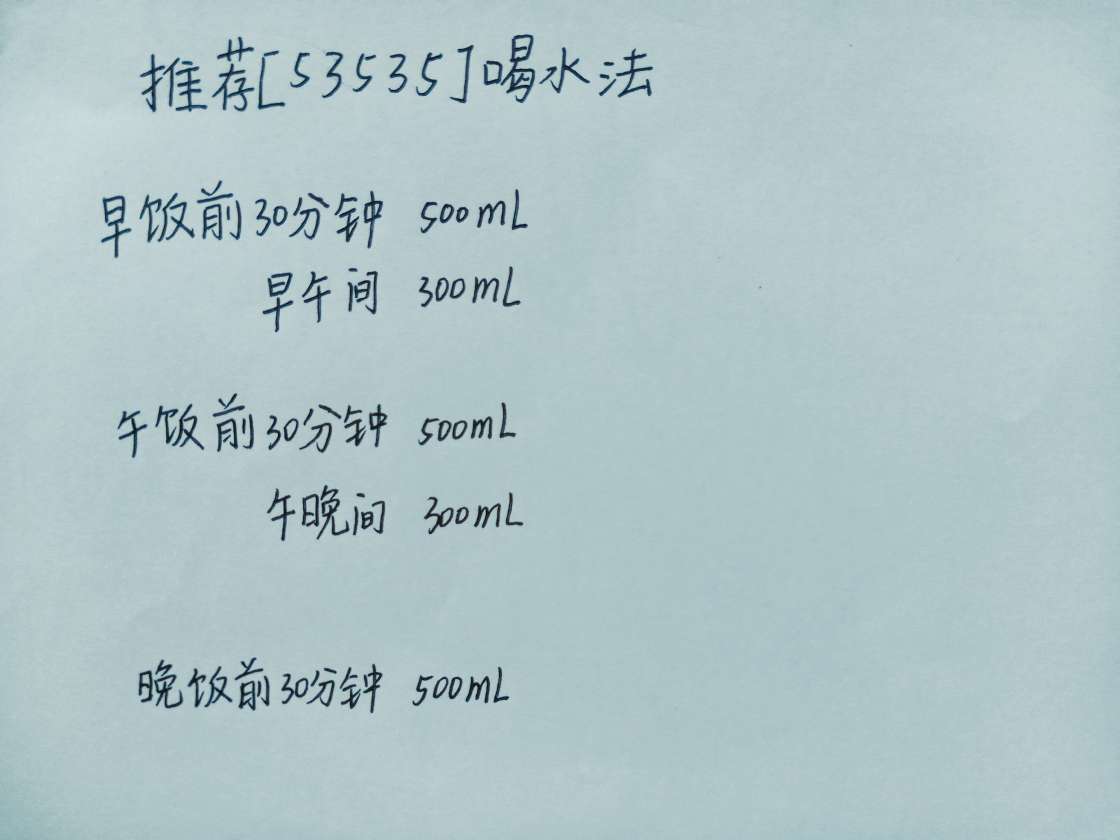 推荐[53535]喝水法
早饭前30分钟 500mL
早午间 300mL
午饭前30分钟 500mL
午晚间 300mL
晚饭前30分钟 500mL